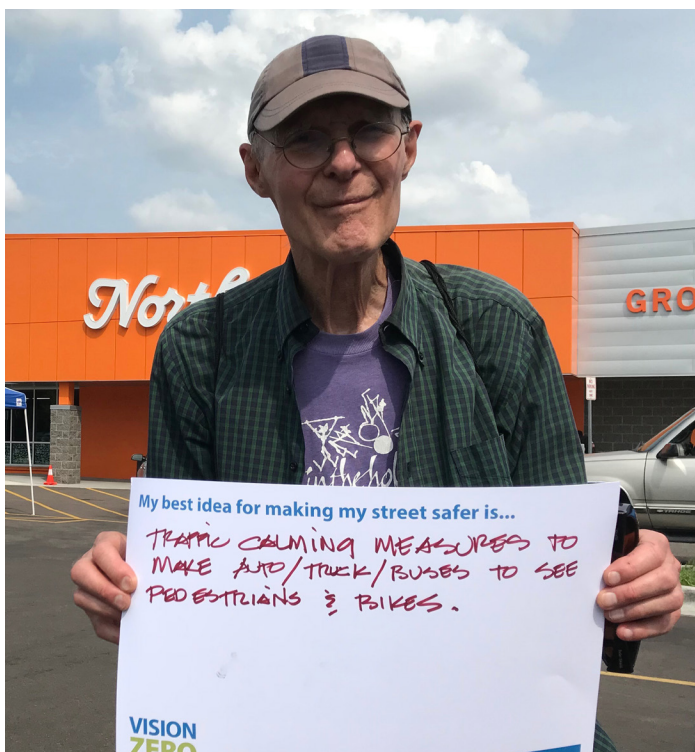 GRO
inthehol
My best idea for making my street safer is...
TRAFFIC CALMING MEASURES TO
MAKE AUTO/TRUCK/BUSES TO SEE
PEDESTRIANS & BIKES.
VISION
ZERO